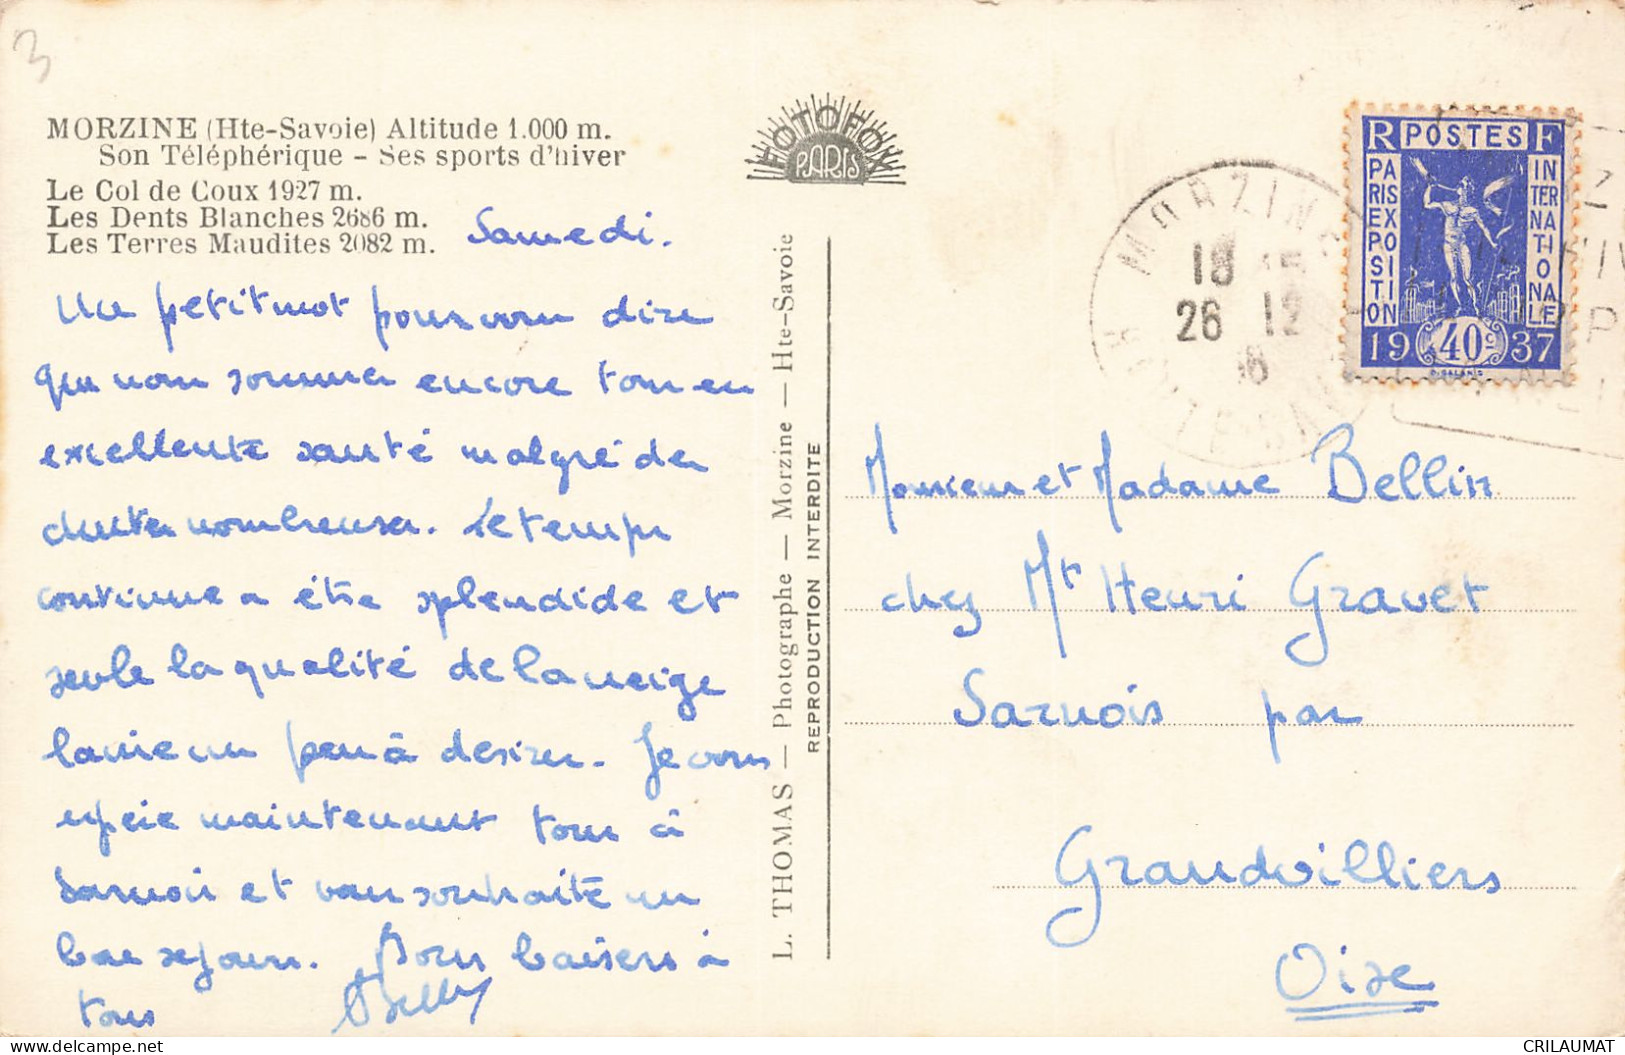 3
MORZINE (Hte-Savoie) Altitude 1.000 m.
Son Téléphérique - Ses sports d'hiver
Le Col de Coux 1927 m.
Les Dents Blanches 2686 m.
Les Terres Maudites 2082 m.
Samedi.
Un petit mot pour vous dire
que nous sommes encore tous en
excellente santé malgré des
chutes nombreuses. Le temps
continue a être splendide et
seule la qualité de la neige
laisse un peu à désirer. Je vous
espère maintenant tous à
Sarnois et vous souhaite un
bon séjour. Bons baisers à
tous
FOTOFOX
PARIS
L. THOMAS — Photographe — Morzine — Hte-Savoie
REPRODUCTION INTERDITE
MORZINE
18 15
26 12
36
HTE SAVOIE
RF POSTES
PARIS EXPOSITION
INTERNATIONALE
1937
40c
Monsieur et Madame Bellin
chez Mr Henri Gravet
Sarnois par
Grandvilliers
Oise
CRILAUMAT